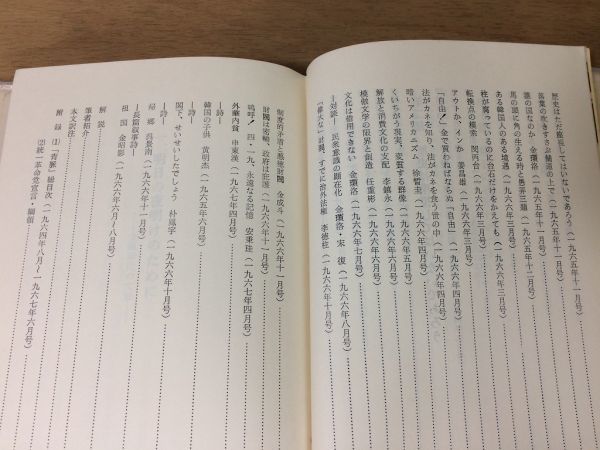 歴史はただ座視してはいないであろう（一九六五年十一月号）
言葉の吹きすさぶ蘭道の上で（一九六五年十一月号）
誰の国なのか 金穳洛（一九六五年十二月号）
馬の頭に角の生える時と愚弄三題（一九六五年十二月号）
ある韓国人のある境遇（一九六六年三月号）
柱が腐っているのに台石だけをかえても（一九六六年三月号）
転換点の模索 関丙台（一九六六年三月号）
アウトか、インか 姜昌雄（一九六六年三月号）
「自由！」金で買わねばならぬ「自由」（一九六六年四月号）
法がカネを知り、法がカネを食う世の中（一九六六年四月号）
暗いアメリカニズム 徐智圭（一九六六年五月号）
くいちがう現実、変質する群像（一九六六年六月号）
解放と消費文化の支配 李鎮永（一九六六年六月号）
模倣文学の限界と創造 任重彬（一九六六年六月号）
文化は信用できない 金穳洛（一九六六年七月号）
―対談― 民衆意識の顕在化 金穳洛・宋 復（一九六六年八月号）
「偉大な」計画、すでに治外法権 李徳柱（一九六六年十月号）
制度的矛盾と悪徳財閥 金成斗（一九六六年十一月号）
財閥は密輸、政府は庇護（一九六六年十一月号）
嗚呼！四・一九、永遠なる記憶 安秉珪（一九六七年四月号）
外華内貧 申東漢（一九六七年四月号）
―詩―
韓国の子供 黄明杰（一九六六年十月号）
―詩―
閣下、せいせいしたでしょう 朴鳳宇（一九六六年十月号）
―詩―
帰郷 呉景南（一九六六年十一月号）
―長篇叙事詩―
祖国 金昭影（一九六六年六月～八月号）
解説
筆者紹介
本文訳注
附録 ⑴「青脈」総目次（一九六四年八月～一九六七年六月号）
⑵統一革命党宣言・綱領